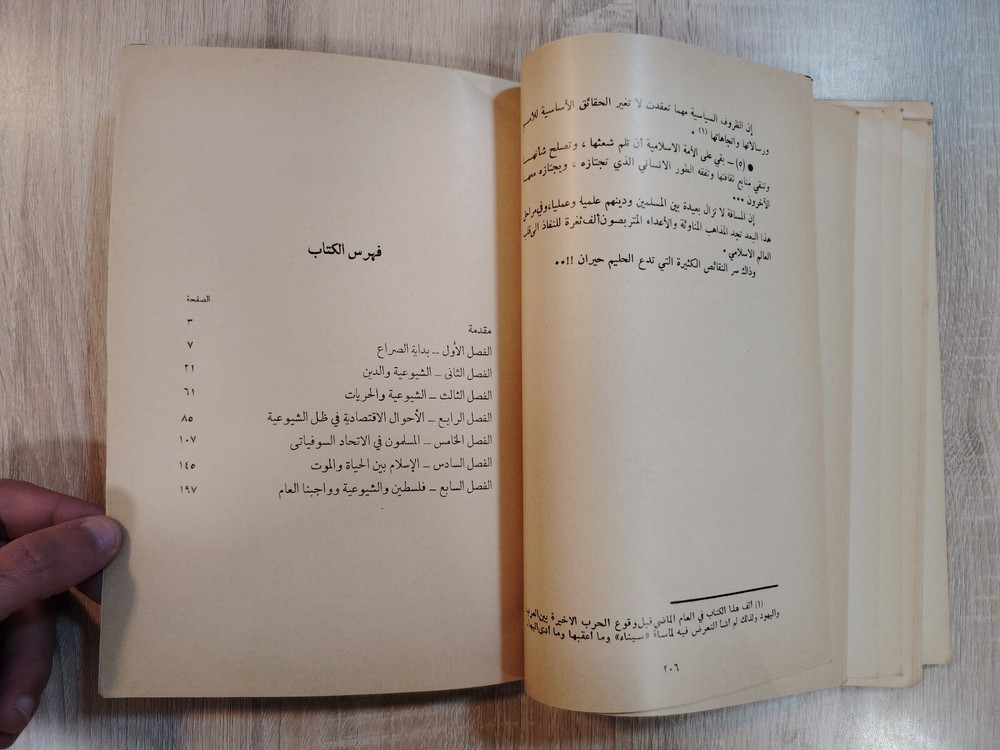 إن الظروف السياسية مهما تعقدت لا تغير الحقائق الأساسية للأمم
ورسالاتها واتجاهاتها (١) .
● (٥) ــ بقي على الأمة الاسلامية أن تلم شعثها ، وتصلح شأنهــا
وتنقي منابع ثقافتها وتفقه الطور الانساني الذي تجتازه ، ويجتازه معها
الآخرون ...
إن المسافة لا تزال بعيدة بين المسلمين ودينهم علمية وعملية، وفي مراحل
هذا البعد تجد المذاهب المناوئة والأعداء المتربصون ألف ثغرة للنفاذ الى قلب
العالم الاسلامي .
وذاك سر النقائص الكثيرة التي تدع الحليم حيران !! ..
(١) ألف هذا الكتاب في العام الماضي قبل وقوع الحرب الاخيرة بين العرب
واليهود ولذلك لم اشأ التعرض فيه لمأساة «سيناء» وما أعقبها وما أدى اليها.
٢٠٦
فهرس الكتاب
الصفحة
مقدمة ٣
الفصل الأول ــ بداية الصراع ٧
الفصل الثانى ــ الشيوعية والدين ٢١
الفصل الثالث ــ الشيوعية والحريات ٦١
الفصل الرابع ــ الأحوال الاقتصادية في ظل الشيوعية ٨٥
الفصل الخامس ــ المسلمون في الاتحاد السوفياتى ١٠٧
الفصل السادس ــ الإسلام بين الحياة والموت ١٤٥
الفصل السابع ــ فلسطين والشيوعية وواجبنا العام ١٩٧